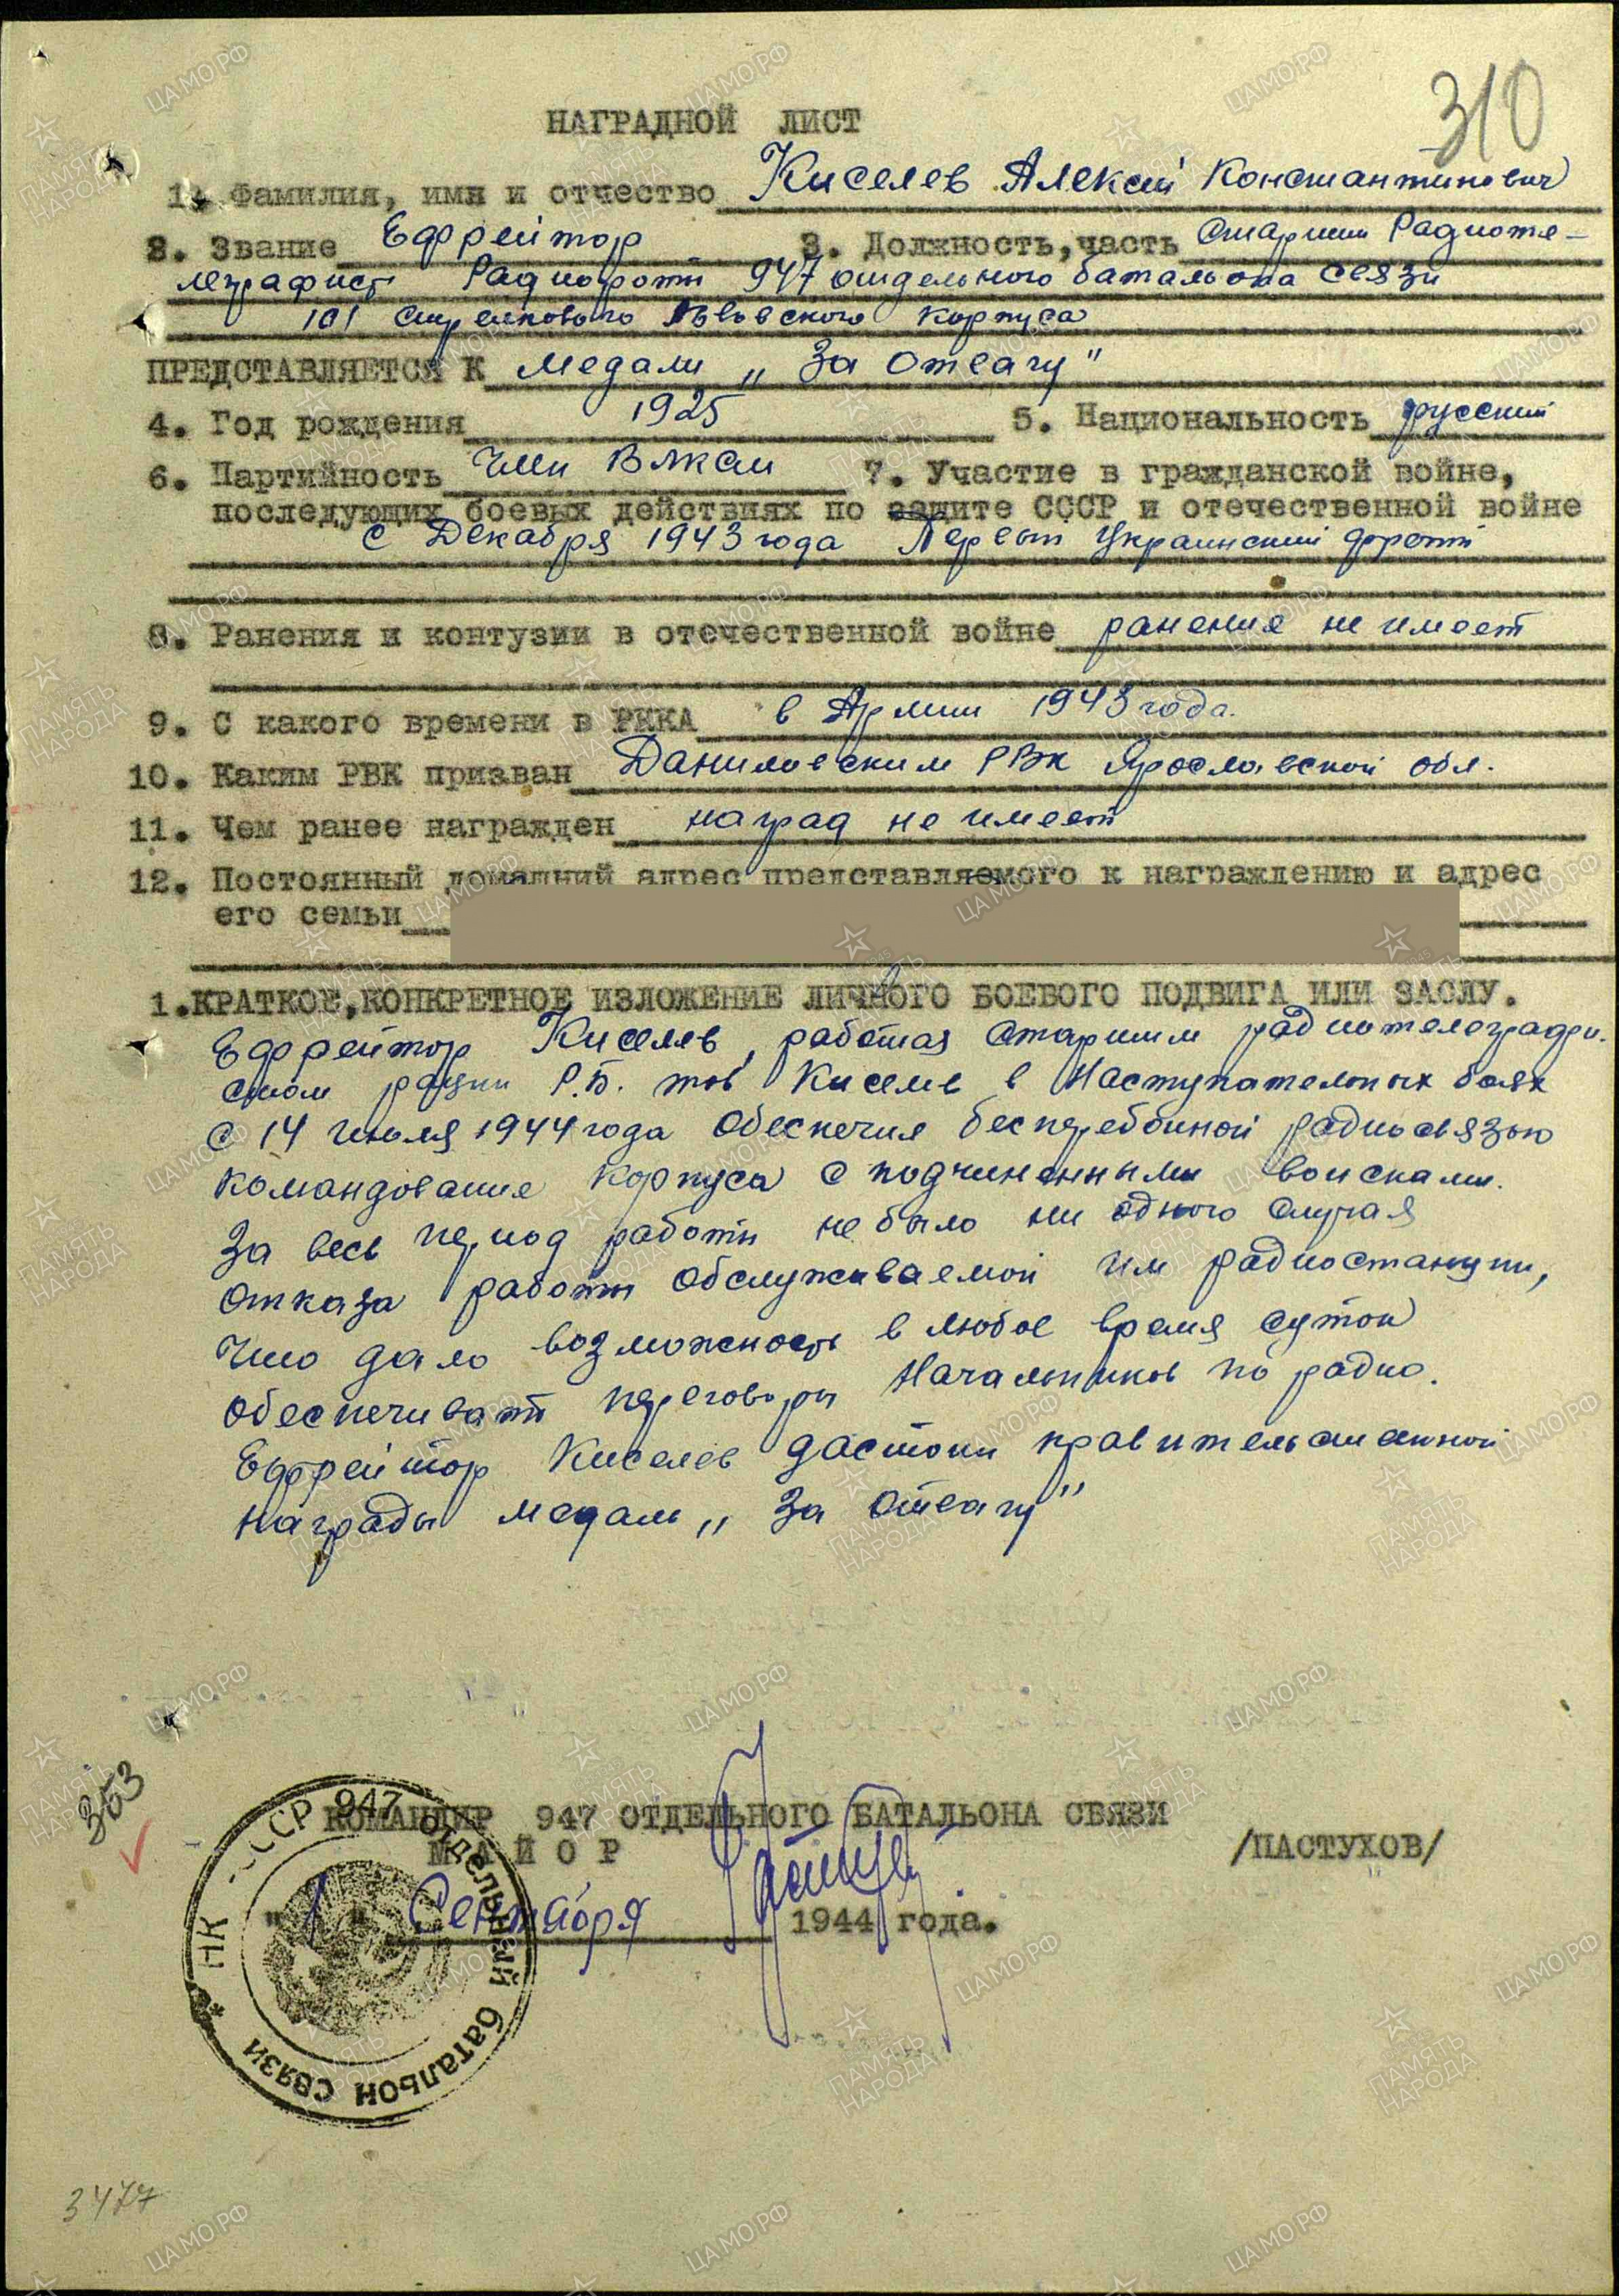 310
НАГРАДНОЙ ЛИСТ
1. Фамилия, имя и отчество Киселев Алексей Константинович
2. Звание Ефрейтор 3. Должность, часть Старший Радиоте-
леграфист Радиороты 947 отдельного батальона связи
101 стрелкового Львовского корпуса
ПРЕДСТАВЛЯЕТСЯ К медали „За отвагу"
4. Год рождения 1925 5. Национальность русский
6. Партийность член ВЛКСМ 7. Участие в гражданской войне,
последующих боевых действиях по защите СССР и отечественной войне
с Декабря 1943 года Первый Украинский фронт
8. Ранения и контузии в отечественной войне ранения не имеет
9. С какого времени в РККА в Армии 1943 года.
10. Каким РВК призван Даниловским РВК Ярославской обл.
11. Чем ранее награжден наград не имеет
12. Постоянный домашний адрес представляемого к награждению и адрес
его семьи
1. КРАТКОЕ, КОНКРЕТНОЕ ИЗЛОЖЕНИЕ ЛИЧНОГО БОЕВОГО ПОДВИГА ИЛИ ЗАСЛУ.
Ефрейтор Киселев, работая старшим радиотелеграфи-
стом рации Р.Б. тов Киселев в Наступательных боях
с 14 июля 1944 года обеспечил бесперебойной радиосвязью
командование корпуса с подчиненными войсками.
За весь период работы не было ни одного случая
отказа работы обслуживаемой им радиостанции,
Что дало возможность в любое время суток
обеспечивать переговоры Начальников по радио.
Ефрейтор Киселев достоин правительственной
награды медаль „За отвагу"
353
КОМАНДИР 947 ОТДЕЛЬНОГО БАТАЛЬОНА СВЯЗИ
МАЙОР /ПАСТУХОВ/
"1" Сентября 1944 года.
НК СССР 947 отдельный батальон связи
3477